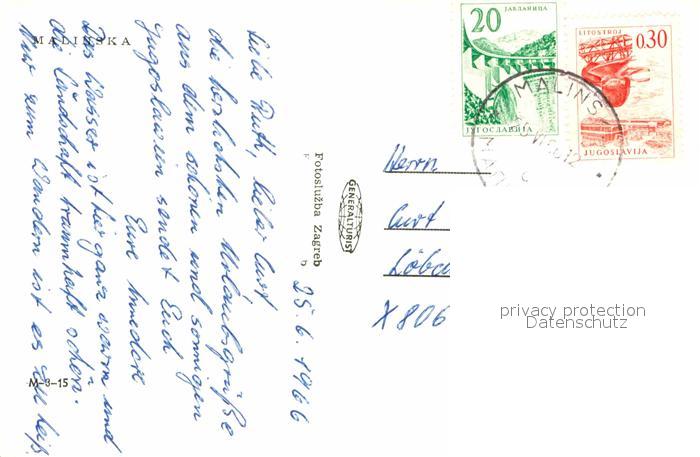 MALINSKA
Liebe Ruth, lieber Curt
die herzlichsten Urlaubsgrüße
aus dem schönen und sonnigen
Jugoslawien sendet Euch
Eure
Das Wasser ist hier ganz warm und
die Landschaft traumhaft schön.
Nur zum Wandern ist es zu heiß.
M-3-15
25.6.1966
Fotoslužba Zagreb
GENERALTURIST
20
ЈАБЛАНИЦА
ЈУГОСЛАВИЈА
LITOSTROJ
0.30
JUGOSLAVIJA
MALINS
Herrn
Curt
Löbau
X 806
privacy protection
Datenschutz